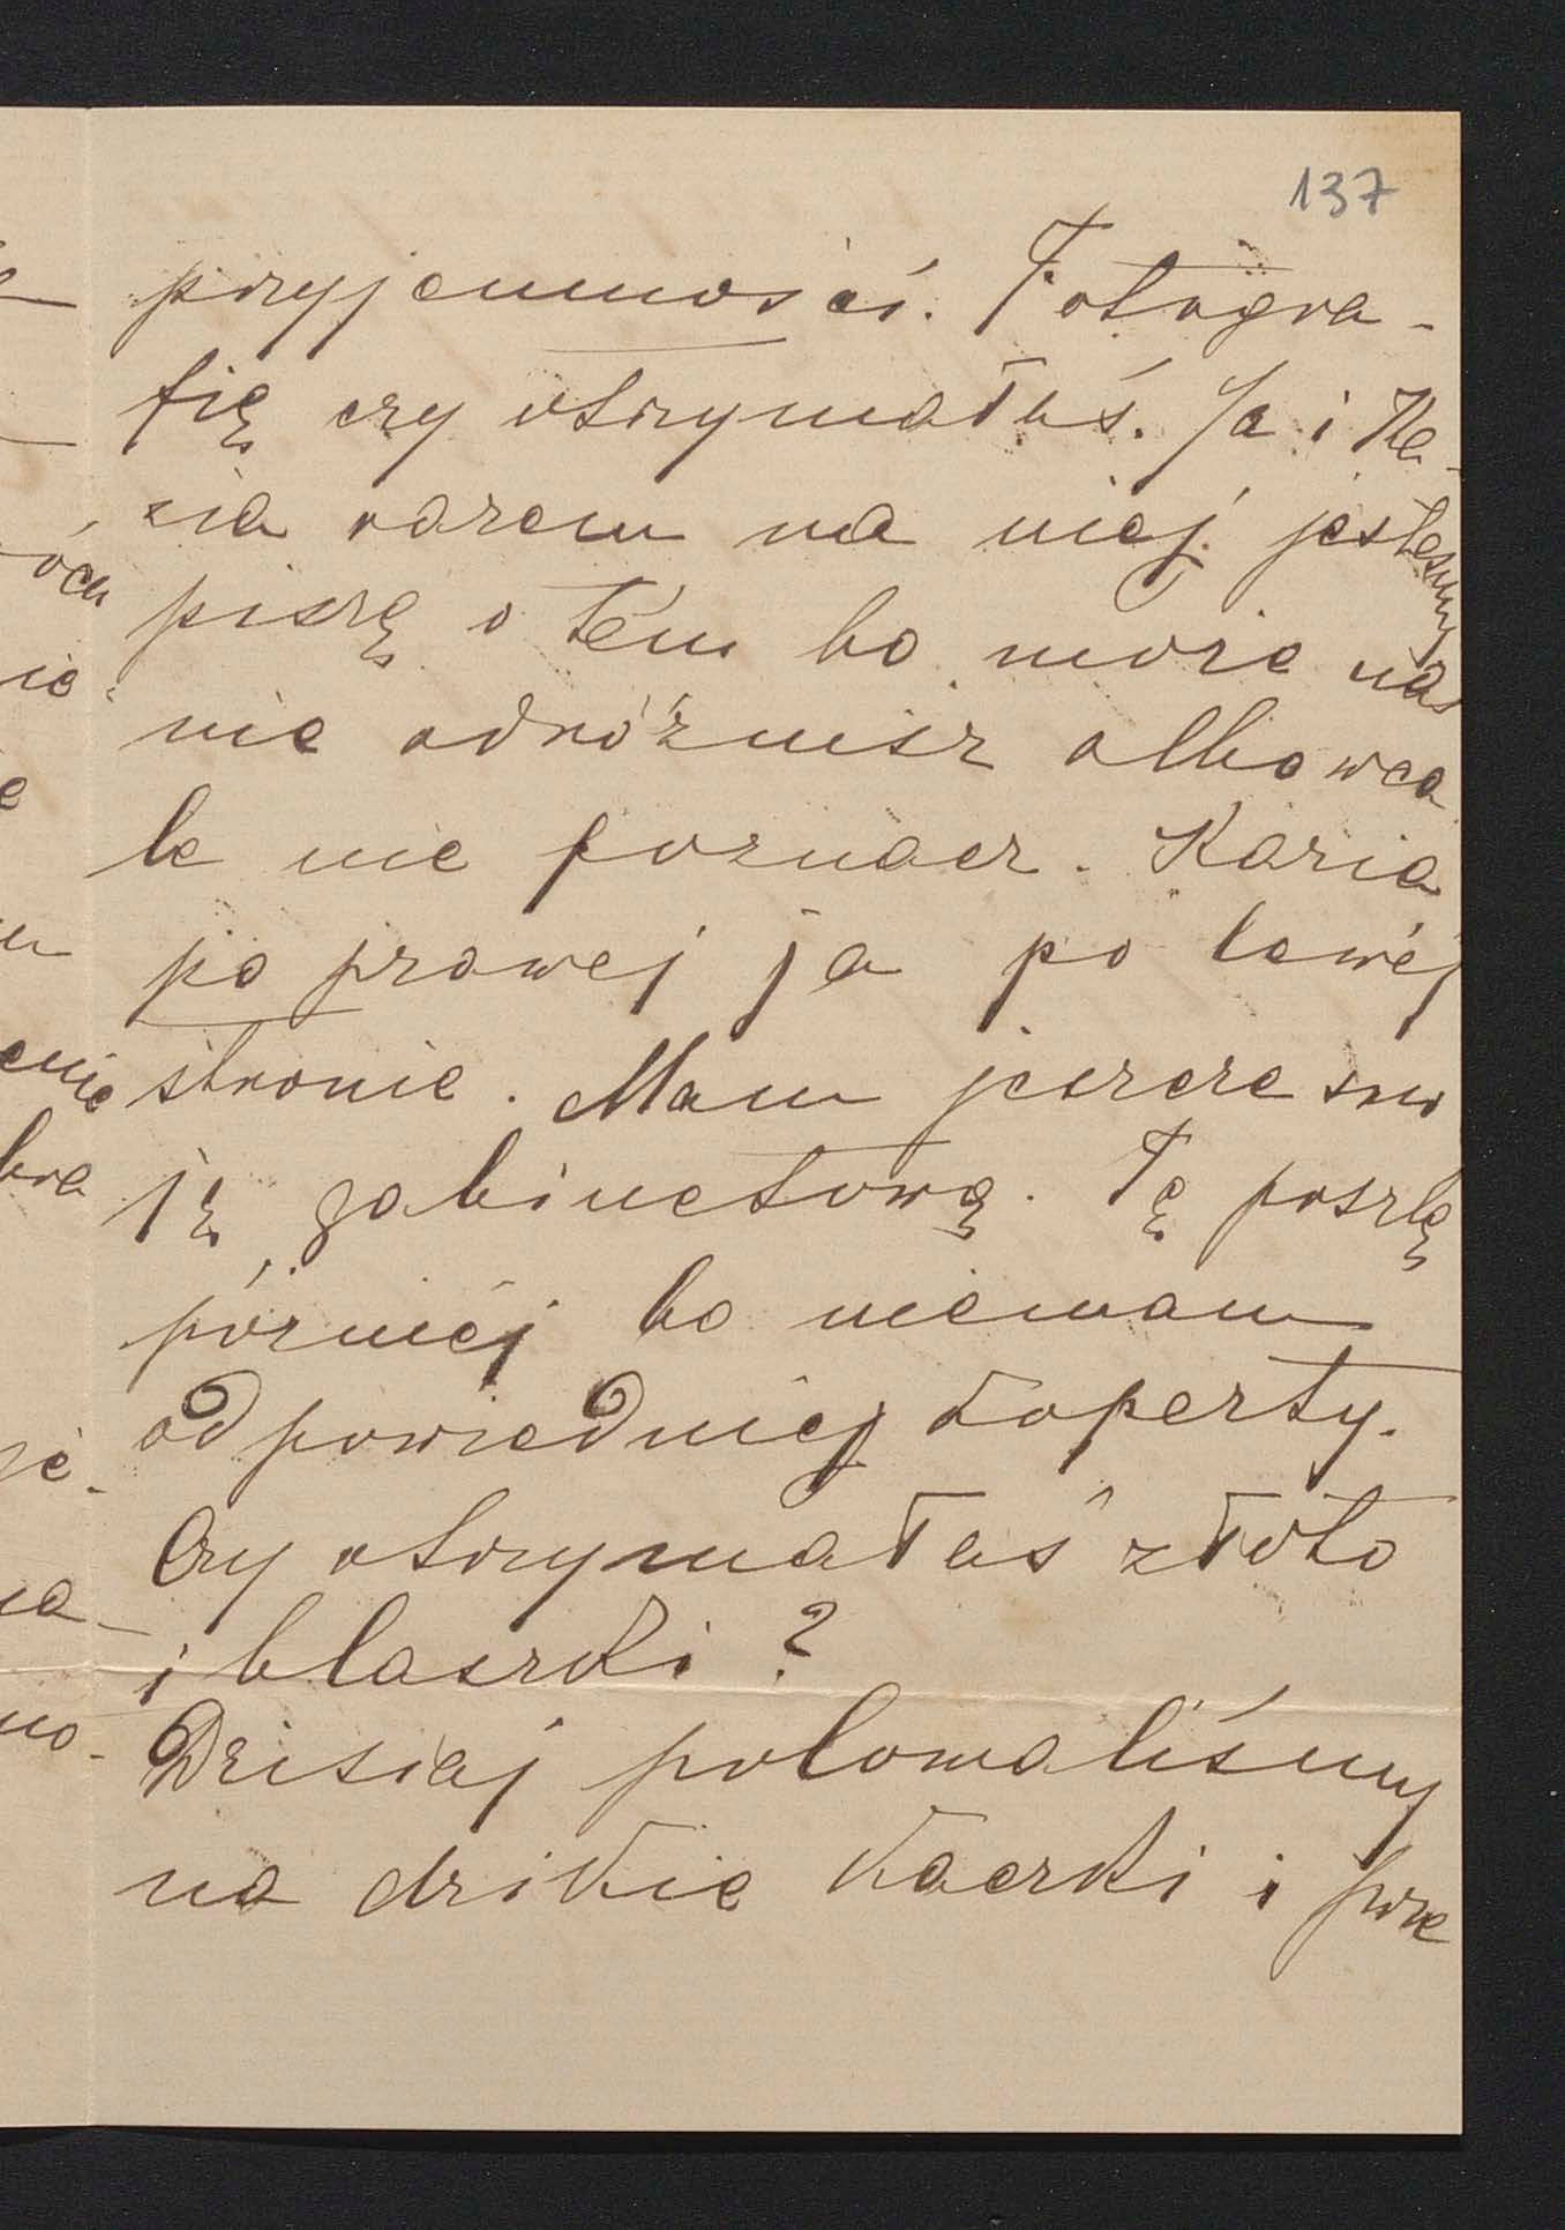 137
przyjemności. Fotogra-
fię czy otrzymałaś. Ja i Ka-
zia razem na niej jesteśmy
piszę o tém bo może nas
nie odróżnisz albo wca
le nie poznasz. Kazia
po prawej ja po lewéj
stronie. Mam jeszcze swo
ję gabinetową. Tę poszlę
pózniéj bo niemam
odpowiedniej koperty.
Czy otrzymałaś złoto
i blaszki?
Dzisiaj polowaliśmy
na dzikie kaczki i prze